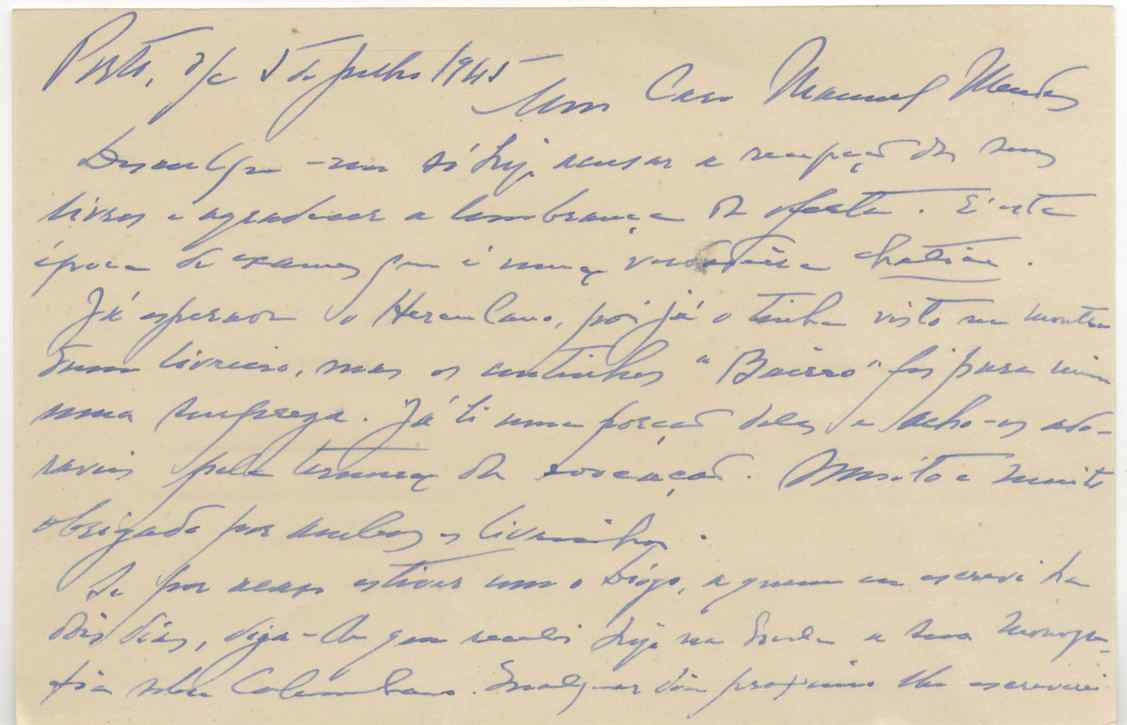 Porto, 5 de Julho 1945
Meu Caro Manuel Mendes
Desculpe-me só hoje acusar a recepção dos seus
livros e agradecer a lembrança da oferta. É esta
época de exames que é uma verdadeira chatice.
Já esperava o Herculano, pois já o tinha visto na montra
dum livreiro, mas os continhos "Bairro" foi para mim
uma surpreza. Já li uma porção deles e acho-os ado-
raveis pela ternura da evocação. Muito e muito
obrigado por ambos os livrinhos.
Se por acaso estiver com o Diogo, a quem eu escrevi ha
dois dias, diga-lhe que recebi hoje na Escola a sua monogra-
fia sobre Columbano. Qualquer dia proximo lhe escreverei